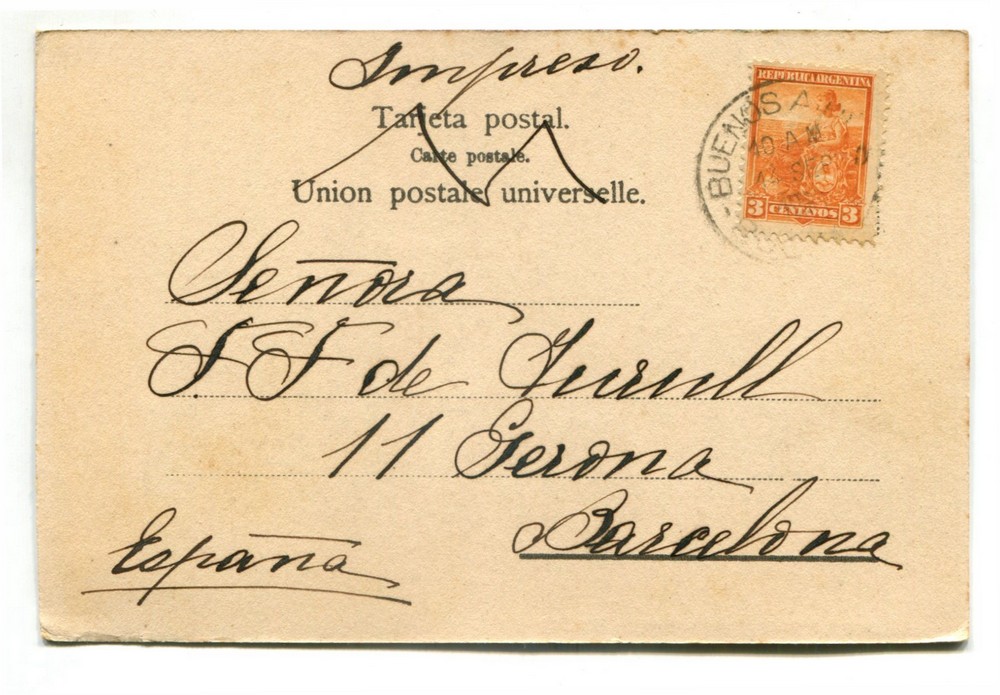 Impreso.
Tarjeta postal.
Carte postale.
Union postale universelle.
REPUBLICA ARGENTINA
3 CENTAVOS 3
BUENOS AIRES
10 AM
Señora
F. F de Turull
11 Gerona
Barcelona
España